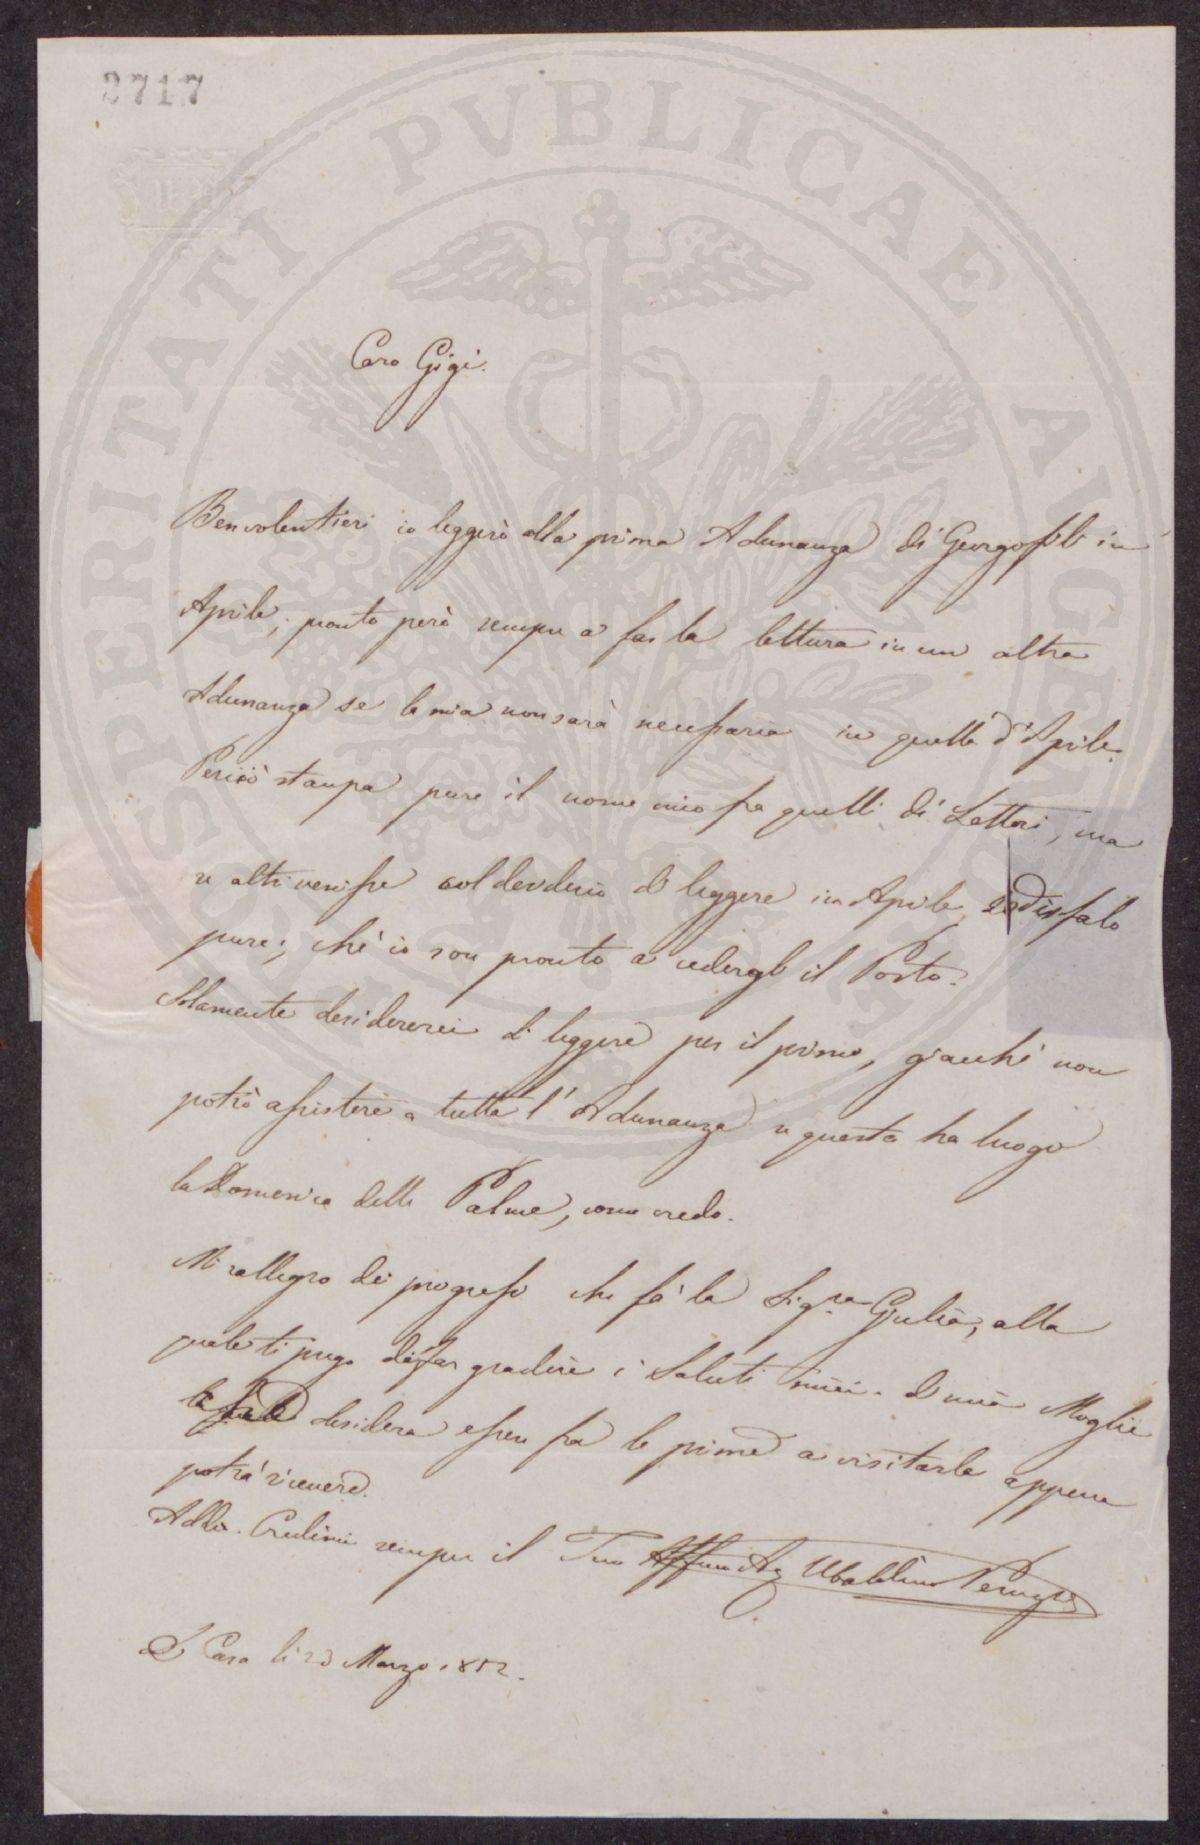 2717
PROSPERITATI PVBLICAE AVGENDAE
Caro Gigi.
Ben volentieri io leggerò alla prima Adunanza di Georgofili in
Aprile; pronto però sempre a far la lettura in un altra
Adunanza se la mia non sarà necessaria in quella d'Aprile.
Perciò stampa pure il nome mio fra quelli di Lettori, ma
se altri venisse col desiderio di leggere in Aprile,
pure; chè io son pronto a cedergli il Posto.
Solamente desidererei di leggere per il primo, giacchè non
potrò assistere a tutta l'Adunanza se questa ha luogo
la Domenica delle Palme, como credo.
Mi rallegro dei progressi che fà la Sig.ra Giulia, alla
quale ti prego di far gradire i Saluti miei. di mia Moglie
la desidera essere fra le prime a visitarla appena
potrà ricevere.
Addio. Credimi sempre il Tuo Affmo Ubaldino Peruzzi
Di Casa li 23 Marzo 1852.